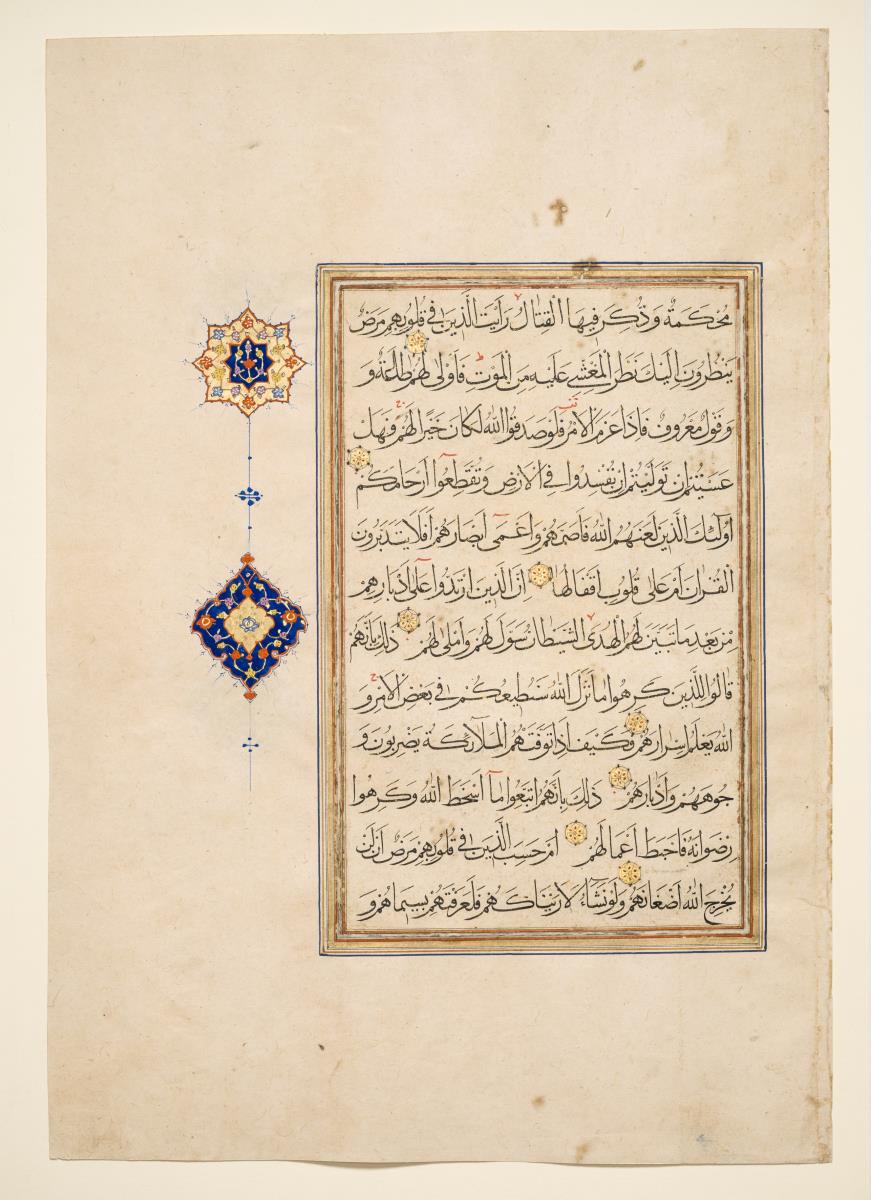 مُحْكَمَةٌ وَذُكِرَ فِيهَا الْقِتَالُ رَأَيْتَ الَّذِينَ فِي قُلُوبِهِمْ مَرَضٌ
يَنْظُرُونَ إِلَيْكَ نَظَرَ الْمَغْشِيِّ عَلَيْهِ مِنَ الْمَوْتِ فَأَوْلَى لَهُمْ طَاعَةٌ وَ
وَقَوْلٌ مَعْرُوفٌ فَإِذَا عَزَمَ الْأَمْرُ فَلَوْ صَدَقُوا اللَّهَ لَكَانَ خَيْرًا لَهُمْ فَهَلْ
عَسَيْتُمْ إِنْ تَوَلَّيْتُمْ أَنْ تُفْسِدُوا فِي الْأَرْضِ وَتُقَطِّعُوا أَرْحَامَكُمْ
أُولَٰئِكَ الَّذِينَ لَعَنَهُمُ اللَّهُ فَأَصَمَّهُمْ وَأَعْمَى أَبْصَارَهُمْ أَفَلَا يَتَدَبَّرُونَ
الْقُرْآنَ أَمْ عَلَى قُلُوبٍ أَقْفَالُهَا إِنَّ الَّذِينَ ارْتَدُّوا عَلَى أَدْبَارِهِمْ
مِنْ بَعْدِ مَا تَبَيَّنَ لَهُمُ الْهُدَى الشَّيْطَانُ سَوَّلَ لَهُمْ وَأَمْلَى لَهُمْ ذَلِكَ بِأَنَّهُمْ
قَالُوا لِلَّذِينَ كَرِهُوا مَا نَزَّلَ اللَّهُ سَنُطِيعُكُمْ فِي بَعْضِ الْأَمْرِ وَ
اللَّهُ يَعْلَمُ إِسْرَارَهُمْ فَكَيْفَ إِذَا تَوَفَّتْهُمُ الْمَلَائِكَةُ يَضْرِبُونَ وُ
جُوهَهُمْ وَأَدْبَارَهُمْ ذَلِكَ بِأَنَّهُمُ اتَّبَعُوا مَا أَسْخَطَ اللَّهَ وَكَرِهُوا
رِضْوَانَهُ فَأَحْبَطَ أَعْمَالَهُمْ أَمْ حَسِبَ الَّذِينَ فِي قُلُوبِهِمْ مَرَضٌ أَنْ لَنْ
يُخْرِجَ اللَّهُ أَضْغَانَهُمْ وَلَوْ نَشَاءُ لَأَرَيْنَاكَهُمْ فَلَعَرَفْتَهُمْ بِسِيمَاهُمْ وَ